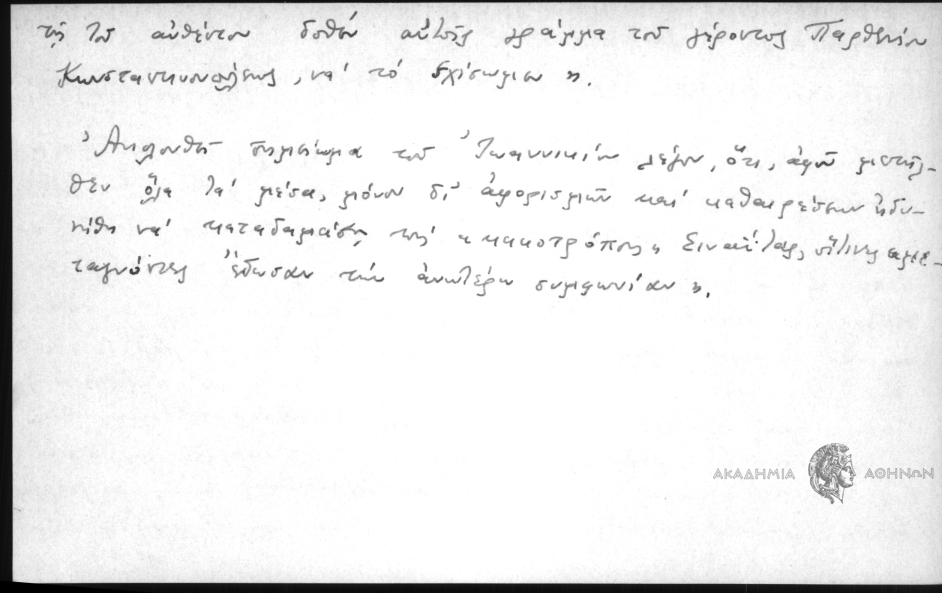 τῆς τοῦ αὐθέντου δοθὲν αὐτοῖς γράμμα τοῦ γέροντος Παρθενίου
Κωνσταντινουπόλεως, νὰ τὸ σχίσωμεν».
Ἀκολουθεῖ σημείωμα τοῦ Ἰωαννικίου λέγον, ὅτι, ἀφοῦ μετῆλ-
θεν ὅλα τὰ μέσα, μόνον δι' ἀφορισμῶν καὶ καθαιρέσεων ἠδυ-
νήθη νὰ καταδαμάσῃ τοὺς «κακοτρόπους» Σιναΐτας, οἵτινες «με-
ταγνόντες ἔδωσαν τὴν ἀνωτέρω συμφωνίαν».
ΑΚΑΔΗΜΙΑ ΑΘΗΝΩΝ